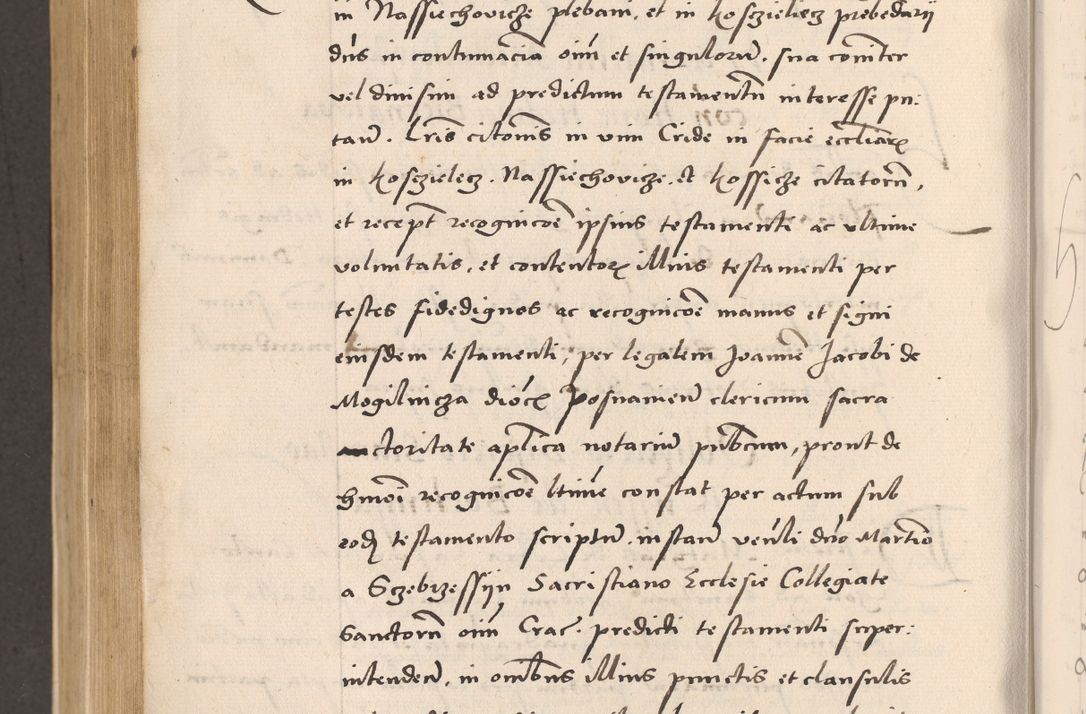 in Nassiechovicze plebani, et in Koszieliecz prebedarij
dns in contumacia oim et singulorum, sua comiter
vel diuisim ad predictum testamentu interesse pu:
tan. Lris citonis in vim Cride in facie eccliarum
in Koszielecz. Nassiechovicze. et Kossicze citatorum,
et recept recognicoe ipsius testamenti ac ultime
voluntatis, et contentorum illius testamenti per
testes fidedignos ac recognicoe manus et signi
eiusdem testamenti, per legalem Joanne Jacobi de
Mogilnicza dioces Posnanien clericum sacra
auctoritate aplica notariu publicum, prout de
hmoi recognicoe ltime constat per actum sub
eod testamento scriptu. instan venli dno Martino
a Sczebrzessyn Sacristiano Ecclesie Collegiate
Sanctoru oim Crac. predicti testamenti super:
intenden. in omibus illius punctis et clausulis